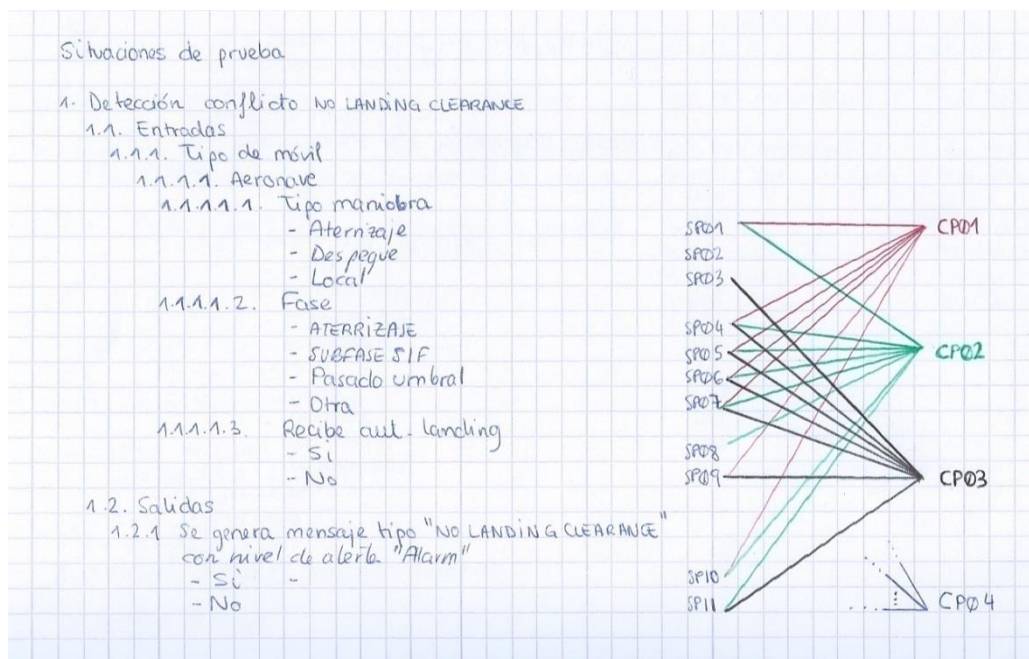 Situaciones de prueba
1. Detección conflicto NO LANDING CLEARANCE
1.1. Entradas
1.1.1. Tipo de móvil
1.1.1.1. Aeronave
1.1.1.1.1. Tipo maniobra
- Aterrizaje
- Despegue
- Local
1.1.1.1.2. Fase
- ATERRIZAJE
- SUBFASE SIF
- Pasado umbral
- Otra
1.1.1.1.3. Recibe aut. landing
- Si
- No
1.2. Salidas
1.2.1 Se genera mensaje tipo "NO LANDING CLEARANCE"
con nivel de alerta "Alarm"
- Sí -
- No
SPØ1
SPØ2
SPØ3
SPØ4
SPØ5
SPØ6
SPØ7
SPØ8
SPØ9
SP10
SP11
CPØ1
CPØ2
CPØ3
CPØ4